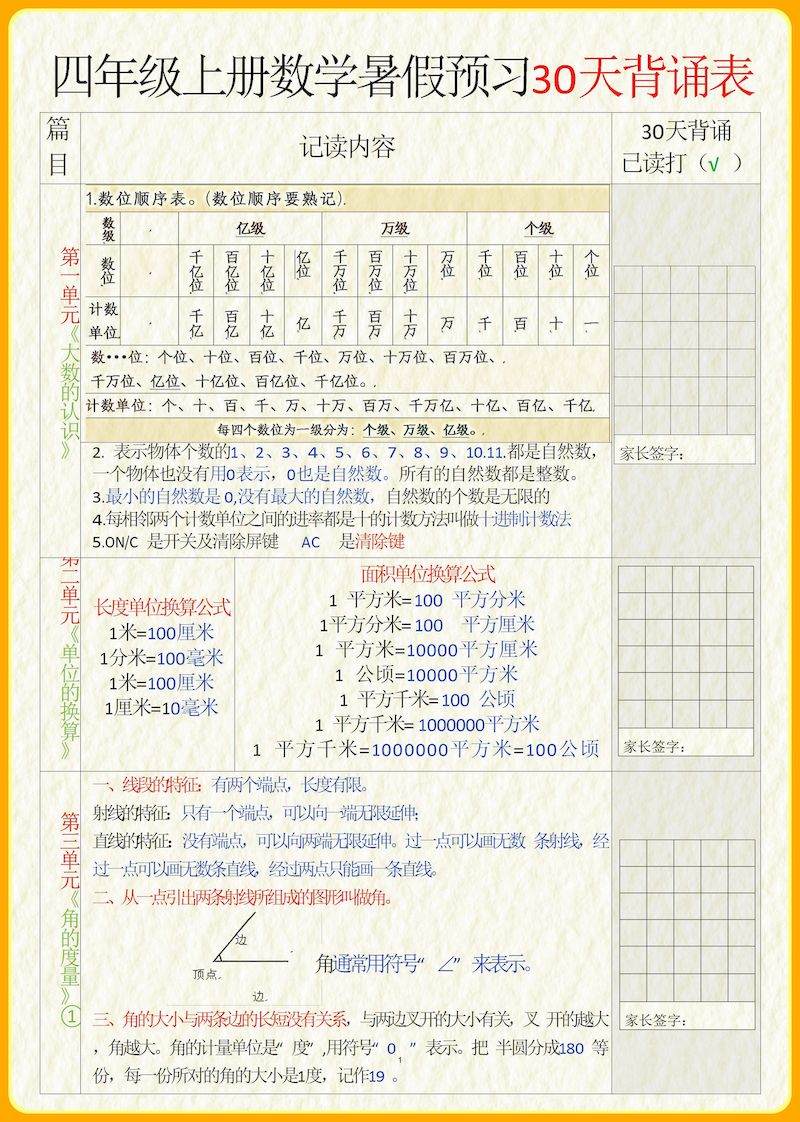 四年级上册数学暑假预习30天背诵表
篇目
记读内容
30天背诵
已读打（√ ）
第一单元《大数的认识》
1.数位顺序表。（数位顺序要熟记）.
数级 亿级 万级 个级
数位 千亿位 百亿位 十亿位 亿位 千万位 百万位 十万位 万位 千位 百位 十位 个位
计数单位 千亿 百亿 十亿 亿 千万 百万 十万 万 千 百 十 一
数•••位：个位、十位、百位、千位、万位、十万位、百万位、
千万位、亿位、十亿位、百亿位、千亿位。
计数单位：个、十、百、千、万、十万、百万、千万亿、十亿、百亿、千亿
每四个数位为一级分为：个级、万级、亿级。
2. 表示物体个数的1、2、3、4、5、6、7、8、9、10.11.都是自然数，
一个物体也没有用0表示，0也是自然数。所有的自然数都是整数。
3.最小的自然数是0,没有最大的自然数，自然数的个数是无限的
4.每相邻两个计数单位之间的进率都是十的计数方法叫做十进制计数法
5.ON/C 是开关及清除屏键 AC 是清除键
家长签字：
第二单元《单位的换算》
长度单位换算公式
1米=100厘米
1分米=100毫米
1米=100厘米
1厘米=10毫米
面积单位换算公式
1 平方米=100 平方分米
1平方分米=100 平方厘米
1 平方米=10000平方厘米
1 公顷=10000平方米
1 平方千米=100 公顷
1 平方千米=1000000平方米
1 平方千米=1000000平方米=100公顷
家长签字：
第三单元《角的度量》①
一、线段的特征：有两个端点，长度有限。
射线的特征：只有一个端点，可以向一端无限延伸;
直线的特征：没有端点，可以向两端无限延伸。过一点可以画无数 条射线，经
过一点可以画无数条直线，经过两点只能画一条直线。
二、从一点引出两条射线所组成的图形叫做角。
边
顶点
边
角通常用符号“ ∠” 来表示。
三、角的大小与两条边的长短没有关系，与两边叉开的大小有关，叉 开的越大
，角越大。角的计量单位是“ 度” ,用符号“ 0 ” 表示。把 半圆分成180 等
1
份，每一份所对的角的大小是1度，记作19 。
家长签字：